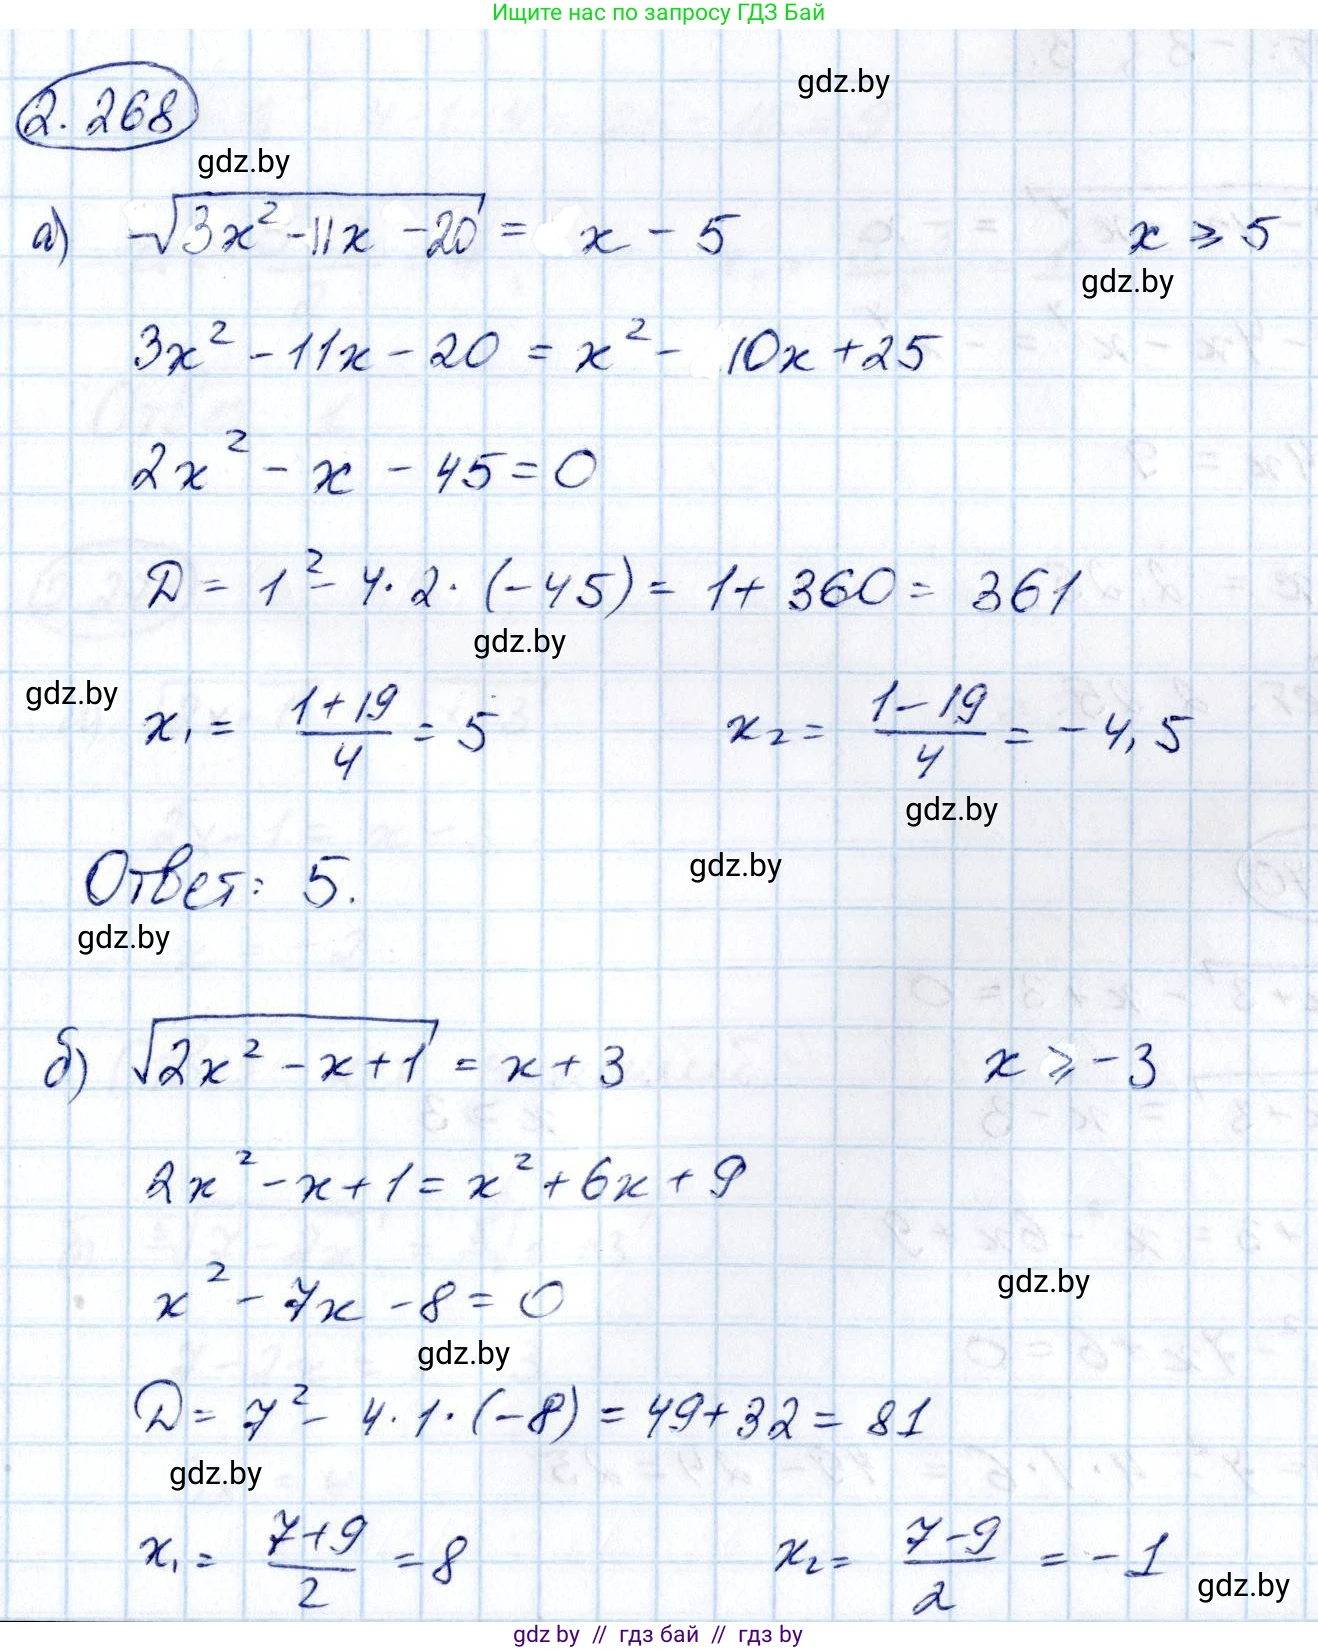 Ищите нас по запросу ГДЗ Бай
2.268
gdz.by
gdz.by
а) √(3x² - 11x - 20) = x - 5     x ⩾ 5
gdz.by
3x² - 11x - 20 = x² - 10x + 25
2x² - x - 45 = 0
D = 1² - 4·2·(-45) = 1 + 360 = 361
gdz.by
gdz.by
x₁ = (1+19)/4 = 5     x₂ = (1-19)/4 = -4,5
gdz.by
gdz.by
Ответ: 5.
gdz.by
б) √(2x² - x + 1) = x + 3     x ⩾ -3
2x² - x + 1 = x² + 6x + 9
gdz.by
x² - 7x - 8 = 0
gdz.by
D = 7² - 4·1·(-8) = 49 + 32 = 81
gdz.by
x₁ = (7+9)/2 = 8     x₂ = (7-9)/2 = -1
gdz.by
gdz by // гдз бай // гдз by